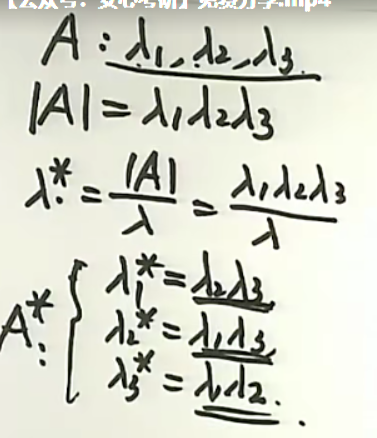 【公众号：安心考研】免费分享.mp4
A : λ₁, λ₂, λ₃.
|A| = λ₁λ₂λ₃
λ* = |A|/λ = λ₁λ₂λ₃/λ
A* : { λ₁* = λ₂λ₃
λ₂* = λ₁λ₃
λ₃* = λ₁λ₂.